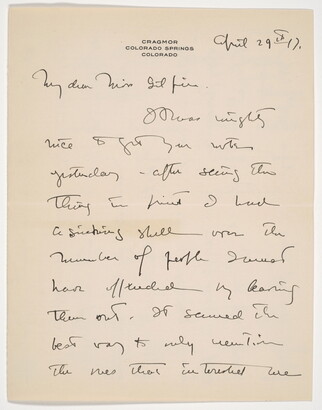 CRAGMOR
COLORADO SPRINGS
COLORADO
April 29th 17.
My dear Miss Gilpin.
It was mighty
nice to get your note
yesterday - after seeing the
thing in print I had
a sinking spell over the
number of people I must
have offended by leaving
them out. It seemed the
best way to only mention
the ones that interested me